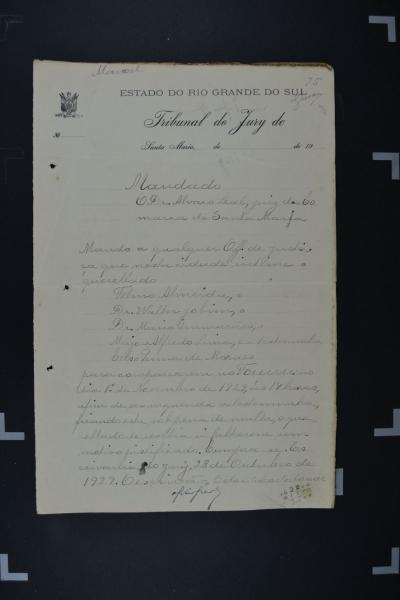 75
ESTADO DO RIO GRANDE DO SUL
Tribunal do Jury de
Nº
Santa Maria, de de 19
Mandado
O Dr. Alvaro Leal, juiz da Co
marca de Santa Maria
Mando a qualquer Off. de justi
ça que nesta cidade intime o
querellado
Telmo Almeida, o
Dr. Walter Jobim, o
Dr. Mario
Major Alfredo Lima, e a testemunha
Celso de Moraes
para comparecerem no
dia 1º de Novembro de 1922, ás 14 horas,
afim de ser inquerida a testemunha,
ficando esta, sob pena de multa, o que
rellado de revelia, si faltarem sem
motivo justificado. Cumpra-se. Es
crivania do jury, 28 de Outubro de
1922. O escrivão,